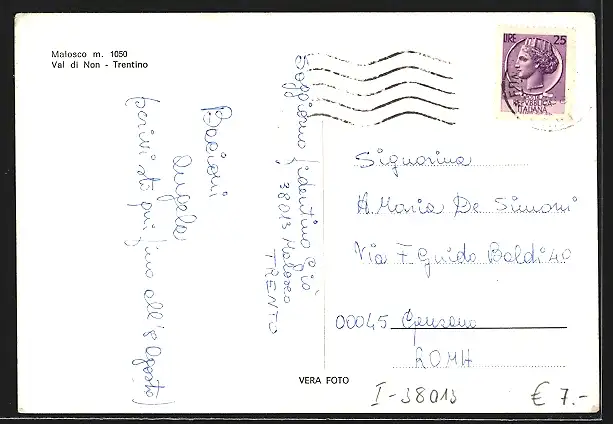 Malosco m. 1050
Val di Non - Trentino
LIRE 25
REPUBBLICA
ITALIANA
Bacioni
Angela
(scrivi sti qui fino all'8 Agosto)
Soggiorno
38013 Malosco
TRENTO
Signorina
A. Maria De Simoni
Via F. Guido Baldi 40
00045 Genzano
ROMA
VERA FOTO
I-38013
€ 7.-